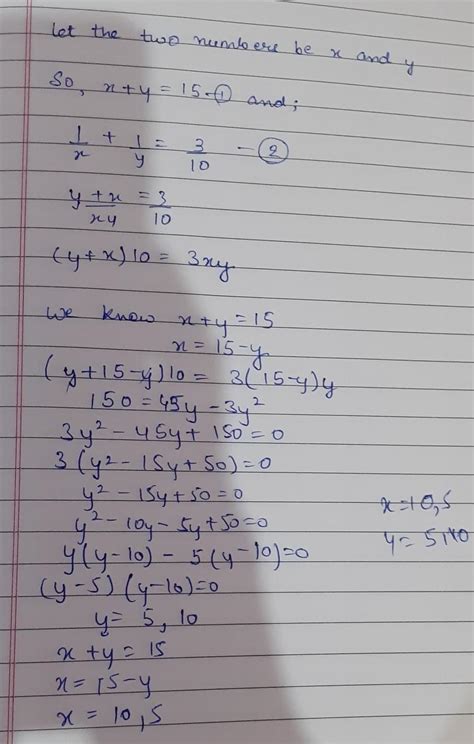 Let the two numbers be x and y
So, x+y = 15 - ① and;
1/x + 1/y = 3/10 - ②
y+x/xy = 3/10
(y+x)10 = 3xy
We know x+y=15
x = 15-y
(y+15-y)10 = 3(15-y)y
150 = 45y - 3y²
3y² - 45y + 150 = 0
3(y² - 15y + 50) = 0
y² - 15y + 50 = 0
y² - 10y - 5y + 50 = 0
y(y-10) - 5(y-10) = 0
(y-5)(y-10) = 0
y = 5, 10
x + y = 15
x = 15-y
x = 10, 5
x = 10, 5
y = 5, 10